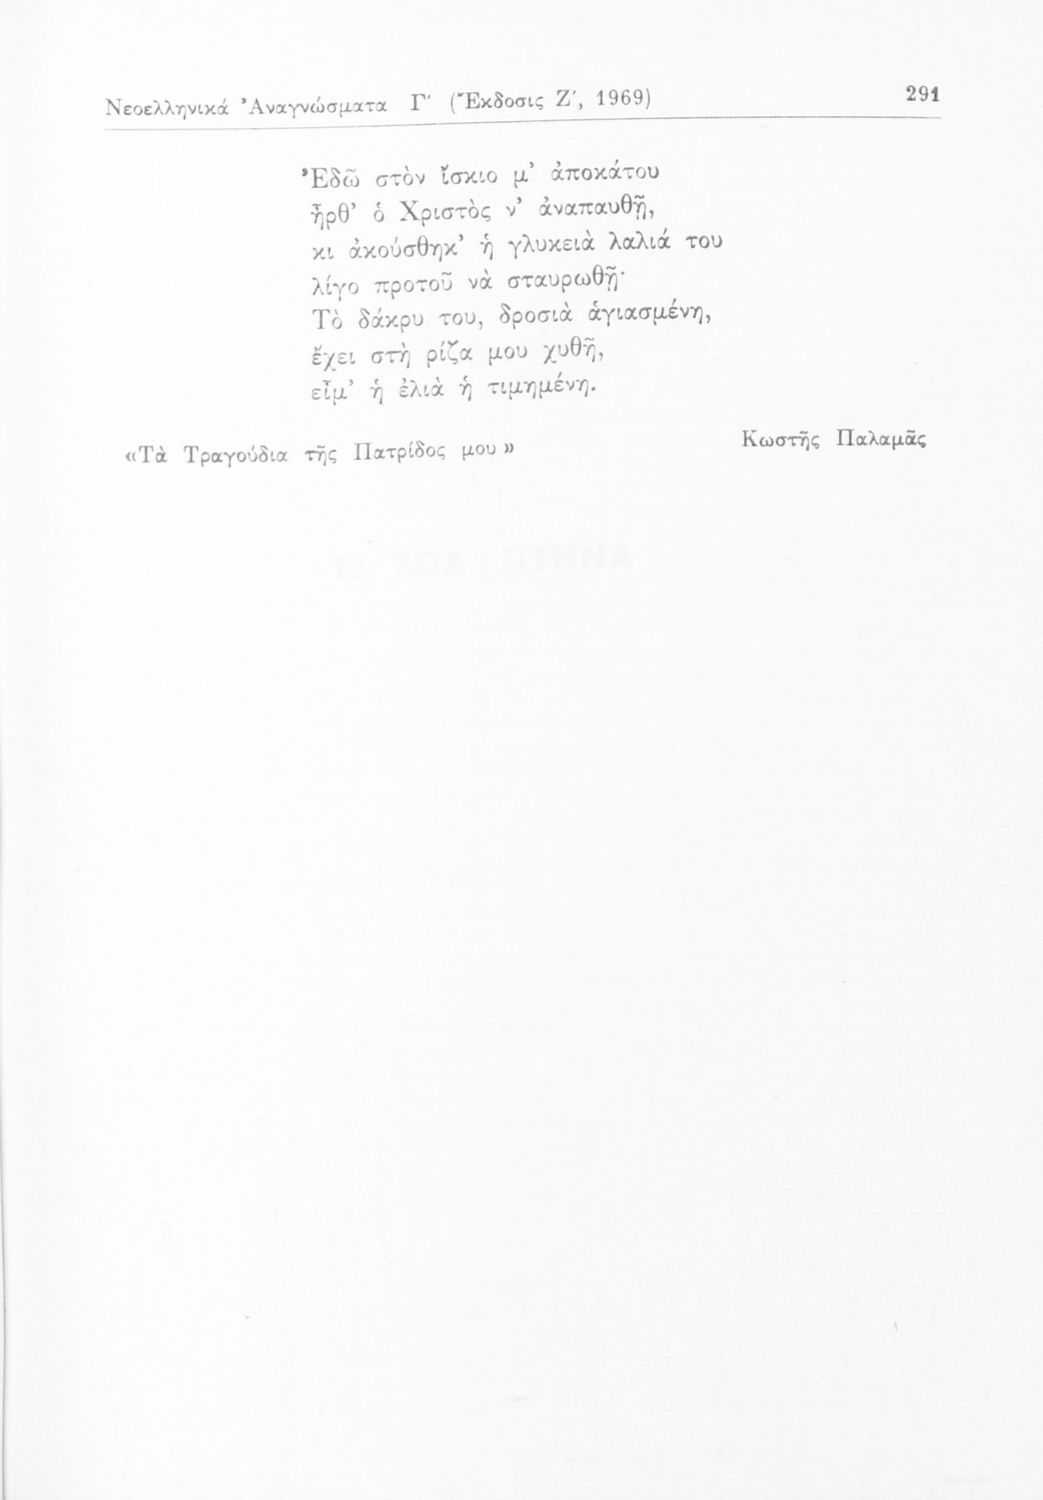 Νεοελληνικά Ἀναγνώσματα Γ΄ (Ἔκδοσις Ζ΄, 1969) 291
Ἐδῶ στὸν ἴσκιο μ’ ἀποκάτου
ἦρθ’ ὁ Χριστὸς ν’ ἀναπαυθῆ,
κι ἀκούσθηκ’ ἡ γλυκειὰ λαλιά του
λίγο προτοῦ νὰ σταυρωθῆ·
Τὸ δάκρυ του, δροσιὰ ἁγιασμένη,
ἔχει στὴ ρίζα μου χυθῆ,
εἶμ’ ἡ ἐλιὰ ἡ τιμημένη.
«Τὰ Τραγούδια τῆς Πατρίδος μου» Κωστῆς Παλαμᾶς